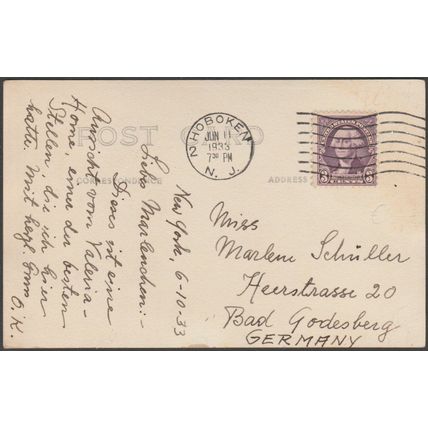 POST CARD
CORRESPONDENCE
ADDRESS
2 HOBOKEN
JUN 11
1933
7 30 PM
N. J.
3 CENTS 3
New York, 6-10-33
Liebe Marlenchen:-
Dieses ist eine
Ansicht vom Valeria-
Home, einer der besten
Stellen, die ich hier
hatte. Mit herzl. Gruss
O. K.
Miss
Marlene Schüller
Heerstrasse 20
Bad Godesberg
GERMANY